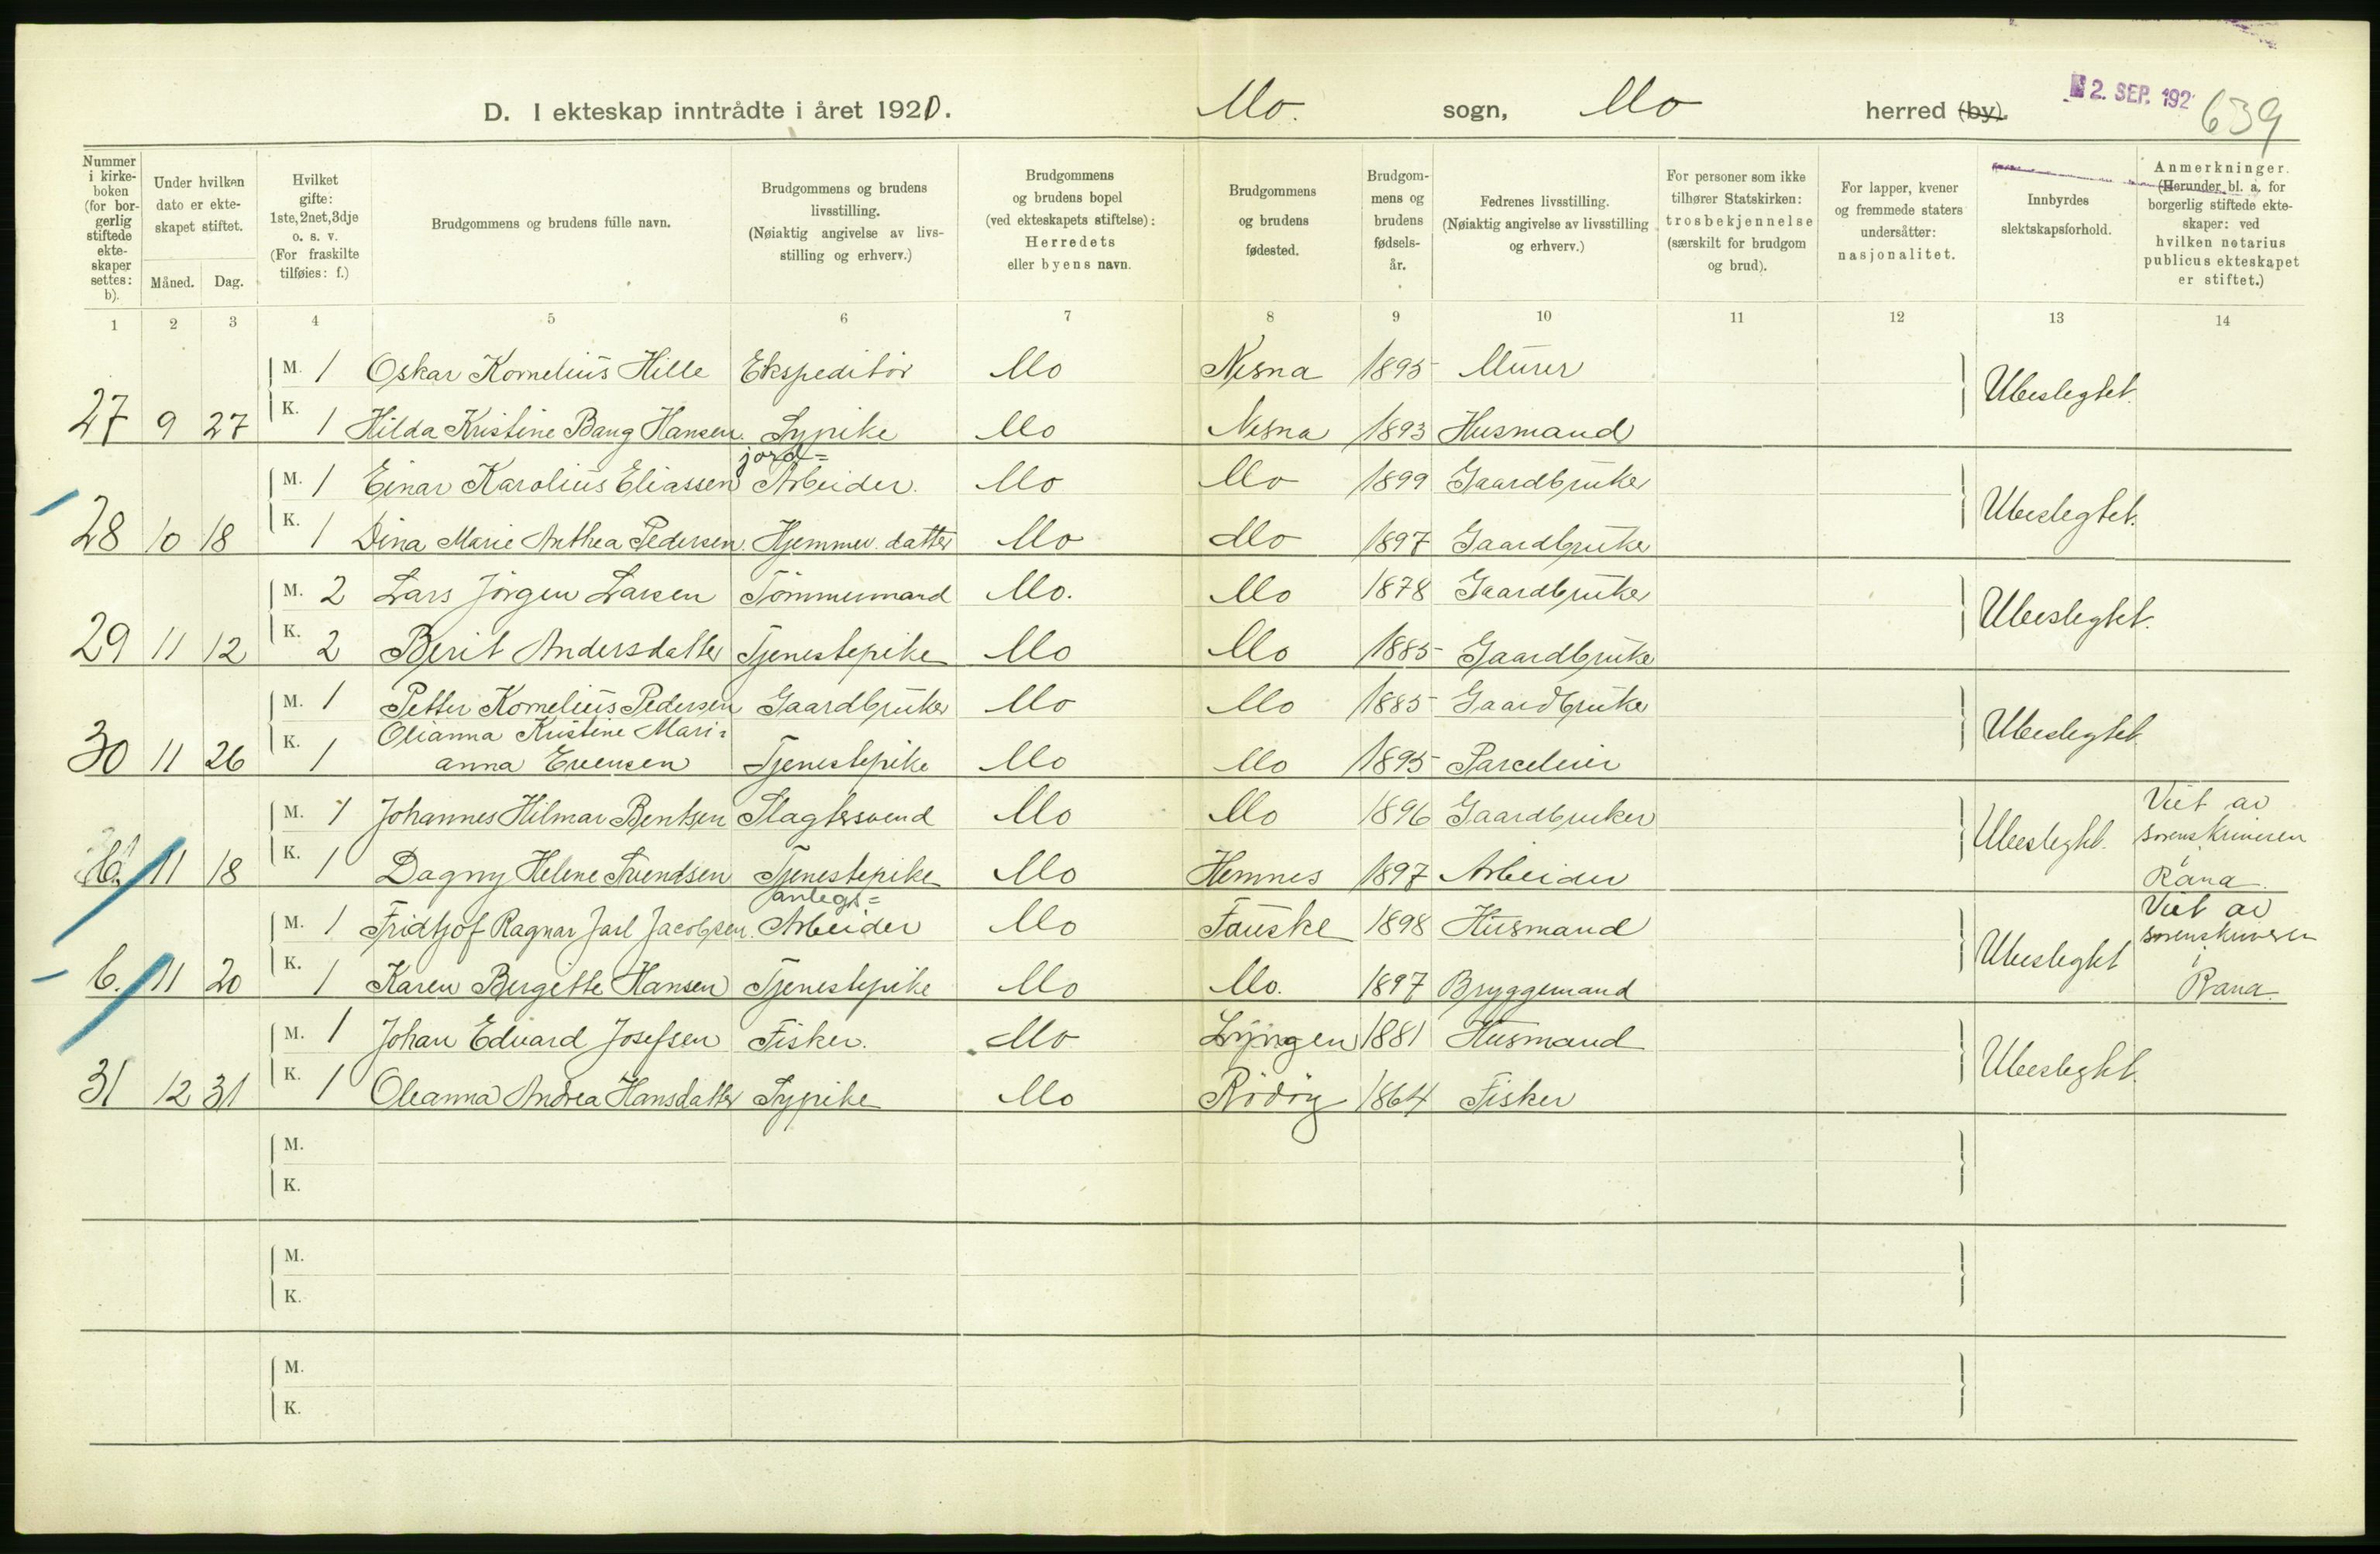 D. I ekteskap inntrådte i året 1920. Mo. sogn, Mo herred (by).
2. SEP. 192
639
Nummer i kirke-boken (for bor-gerlig stiftede ekte-skaper settes: b).
Under hvilken dato er ekte-skapet stiftet.
Måned. Dag.
Hvilket gifte: 1ste, 2net, 3dje o. s. v. (For fraskilte tilføies: f.)
Brudgommens og brudens fulle navn.
Brudgommens og brudens livsstilling. (Nøiaktig angivelse av livs-stilling og erhverv.)
Brudgommens og brudens bopel (ved ekteskapets stiftelse): Herredets eller byens navn.
Brudgommens og brudens fødested.
Brudgom-mens og brudens fødsels-år.
Fedrenes livsstilling. (Nøiaktig angivelse av livsstilling og erhverv.)
For personer som ikke tilhører Statskirken: trosbekjennelse (særskilt for brudgom og brud).
For lapper, kvener og fremmede staters undersåtter: nasjonalitet.
Innbyrdes slektskapsforhold.
Anmerkninger. (Herunder bl. a. for borgerlig stiftede ekte-skaper: ved hvilken notarius publicus ekteskapet er stiftet.)
1 2 3 4 5 6 7 8 9 10 11 12 13 14
M. 1 Oskar Kornelius Hille Ekspeditør Mo Nesna 1895 Murer Ubeslegtet.
27 9 27 K. 1 Hilda Kristine Bang Hansen. Sypike Mo Nesna 1893 Husmand
jord=
M. 1 Einar Karolius Eliassen Arbeider. Mo Mo 1899 Gaardbruker Ubeslegtet.
28 10 18 K. 1 Dina Marie Anthea Pedersen. Hjemmev. datter Mo Mo 1897 Gaardbruker
M. 2 Lars Jörgen Larsen Tömmermand Mo. Mo 1878 Gaardbruker Ubeslegtet.
29 11 12 K. 2 Berit Andersdatter Tjenestepike Mo Mo 1885 Gaardbruker
M. 1 Petter Kornelius Pedersen Gaardbruker Mo Mo 1885 Gaardbruker Ubeslegtet.
Olianna Kristine Mari=
30 11 26 K. 1 anna Evensen Tjenestepike Mo Mo 1895 Parcelier
M. 1 Johannes Hilmar Bentsen Slagtersvend Mo Mo 1896 Gaardbruker Ubeslegtet. Viet av sorenskriveren i Rana.
b. 11 18 K. 1 Dagny Helene Svendsen Tjenestepike Mo Hemnes 1897 Arbeider
anlegs=
M. 1 Fridtjof Ragnar Jarl Jacobsen. Arbeider Mo Fauske 1898 Husmand Ubeslegtet Viet av sorenskriveren i Rana.
b. 11 20 K. 1 Karen Bergitte Hansen Tjenestepike Mo Mo. 1897 Bryggemand
M. 1 Johan Edvard Josefsen Fisker. Mo Lyngen 1881 Husmand Ubeslegtet.
31 12 31 K. 1 Oleanna Andrea Hansdatter Sypike Mo Rödöy 1864 Fisker
M.
K.
M.
K.
M.
K.